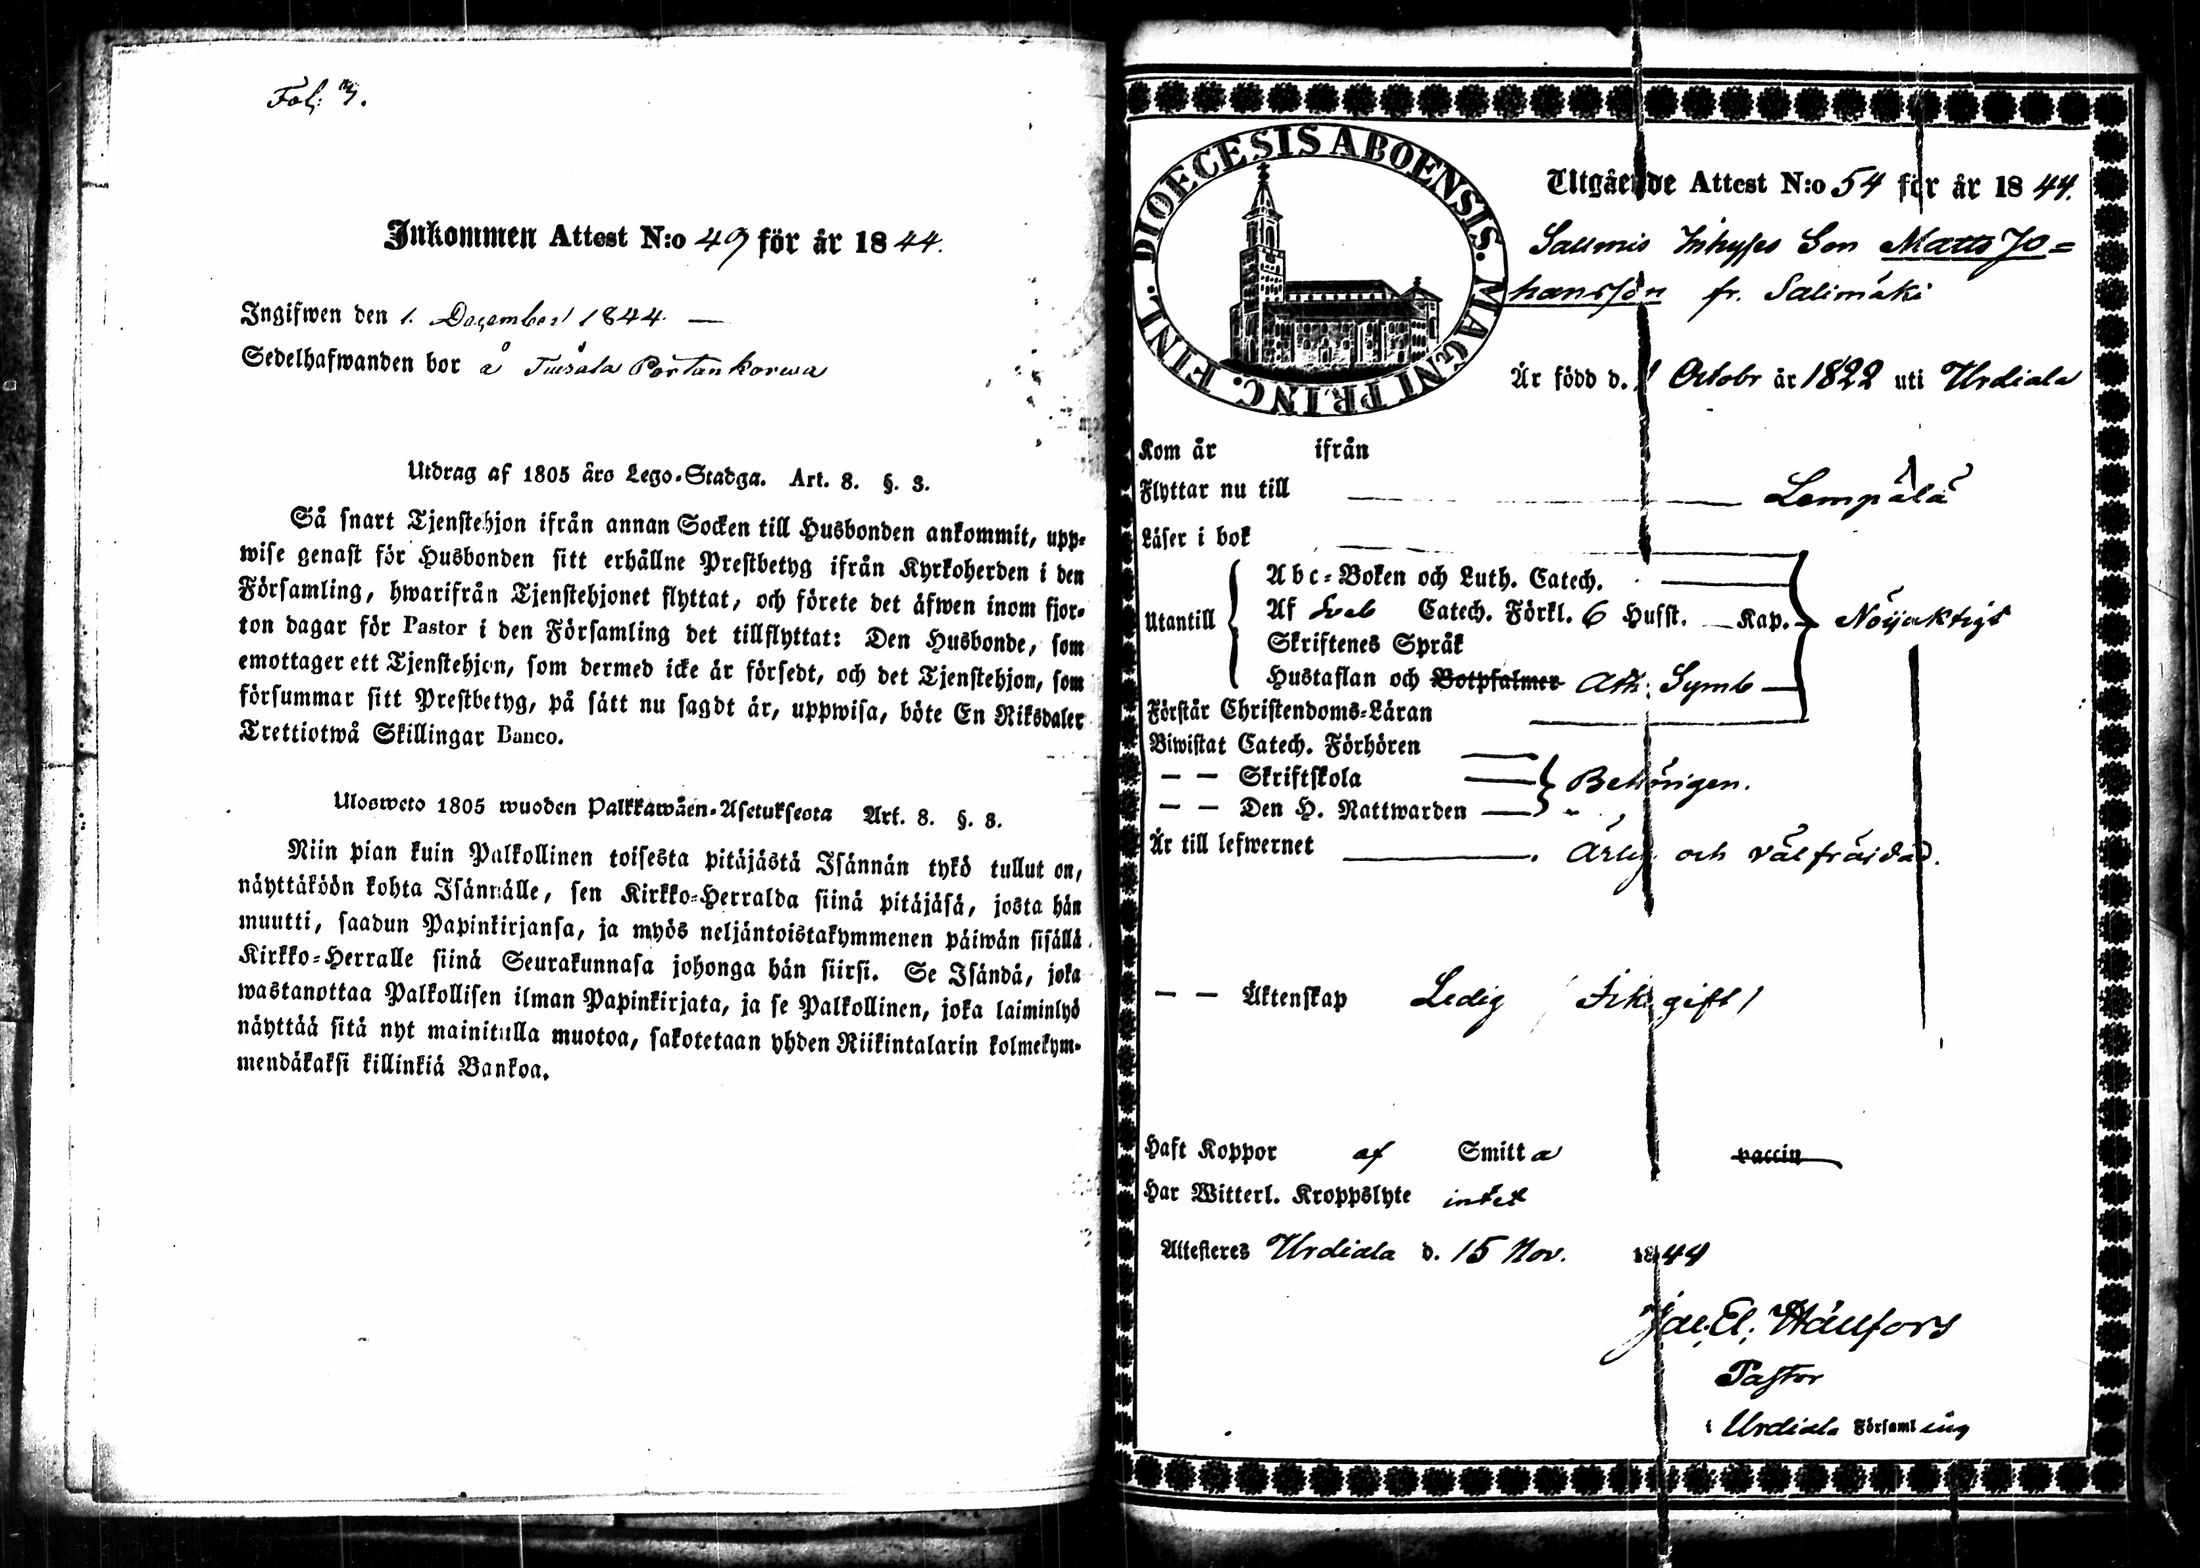 Fol; 3.
Inkommen Attest N:o 49 för år 1844.
Ingifwen den 1. December 1844. —
Sedelhafwanden bor å Tuisala Portankorwa
Utdrag af 1805 års Lego-Stadga. Art. 8. §. 3.
Så snart Tjenstehjon ifrån annan Socken till Husbonden ankommit, upp-
wise genast för Husbonden sitt erhållne Prestbetyg ifrån Kyrkoherden i den
Församling, hwarifrån Tjenstehjonet flyttat, och förete det äfwen inom fjor-
ton dagar för Pastor i den Församling det tillflyttat: Den Husbonde, som
emottager ett Tjenstehjon, som dermed icke är försedt, och det Tjenstehjon, som
försummar sitt Prestbetyg, på sätt nu sagdt är, uppwisa, böte En Riksdaler
Trettiotwå Skillingar Banco.
Ulosweto 1805 wuoden Palkkawäen-Asetuksesta Art. 8. §. 3.
Niin pian kuin Palkollinen toisesta pitäjästä Isännän tykö tullut on,
näyttäköön kohta Isännälle, sen Kirkko-Herralda siinä pitäjäsä, josta hän
muutti, saadun Papinkirjansa, ja myös neljäntoistakymmenen päiwän sisällä
Kirkko-Herralle siinä Seurakunnasa johonga hän siirsi. Se Isändä, joka
wastanottaa Palkollisen ilman Papinkirjata, ja se Palkollinen, joka laiminlyö
näyttää sitä nyt mainitulla muotoa, sakotetaan yhden Riikintalarin kolmekym-
mendäkaksi killinkiä Bankoa.
DIOECESIS ABOENSIS. MAGNI PRINC. FINL.
Utgående Attest N:o 54 för år 1844.
Salmis Inhyses Son Matts Jo=
hansson fr. Salimäki
Är född d. 1 Octobr år 1822 uti Urdiala
Kom år ifrån
Flyttar nu till — Lempälä
Läser i bok
Abc-Boken och Luth. Catech.
Utantill Af Sveb Catech. Förkl. 6 Husst. — Kap. Nöijaktigt
Skriftenes Språk
Hustaflan och Botpsalmer Ath. Symb —
Förstår Christendoms-Läran
Biwistat Catech. Förhören
— — Skriftskola — Behörigen.
— — Den H. Nattwarden —
Är till lefwernet — Ärlig och välfräjdad.
— — Äktenskap Ledig / Icke gift /
Haft Koppor af Smitta vaccin
Har Witterl. Kroppslyte intet
Attesteres Urdiala d. 15 Nov. 1844
Jac. El. Hällfors
Pastor
i Urdiala Församling